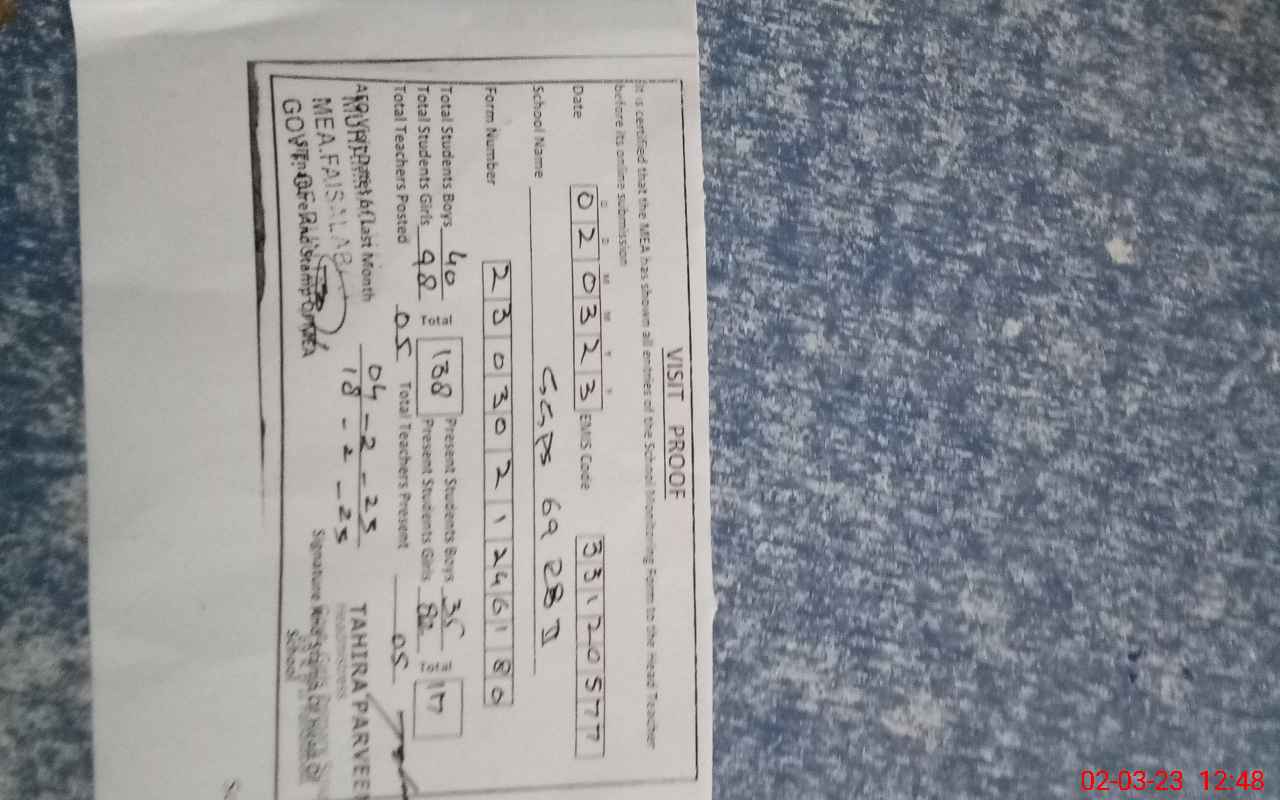 VISIT PROOF
It is certified that the MEA has shown all entries of the School Monitoring Form to the Head Teacher
before its online submission
D D M M Y Y
Date 0 2 0 3 2 3 EMIS Code 3 3 1 2 0 5 7 7
School Name GGPS 69 RB II
Form Number 2 3 0 3 0 2 1 2 4 6 1 8 0
Total Students Boys 40 Total 138 Present Students Boys 35 Total 117
Total Students Girls 98 Present Students Girls 82
Total Teachers Posted 05 Total Teachers Present 05
AEO Visit Dates of Last Month 04-2-23
18-2-23
TAHIRA PARVEEN
Headmistress
MEA FAISALABAD
GOVT. OF
Signature and Stamp of MEA
Signature and Stamp of Head of
School
02-03-23 12:48